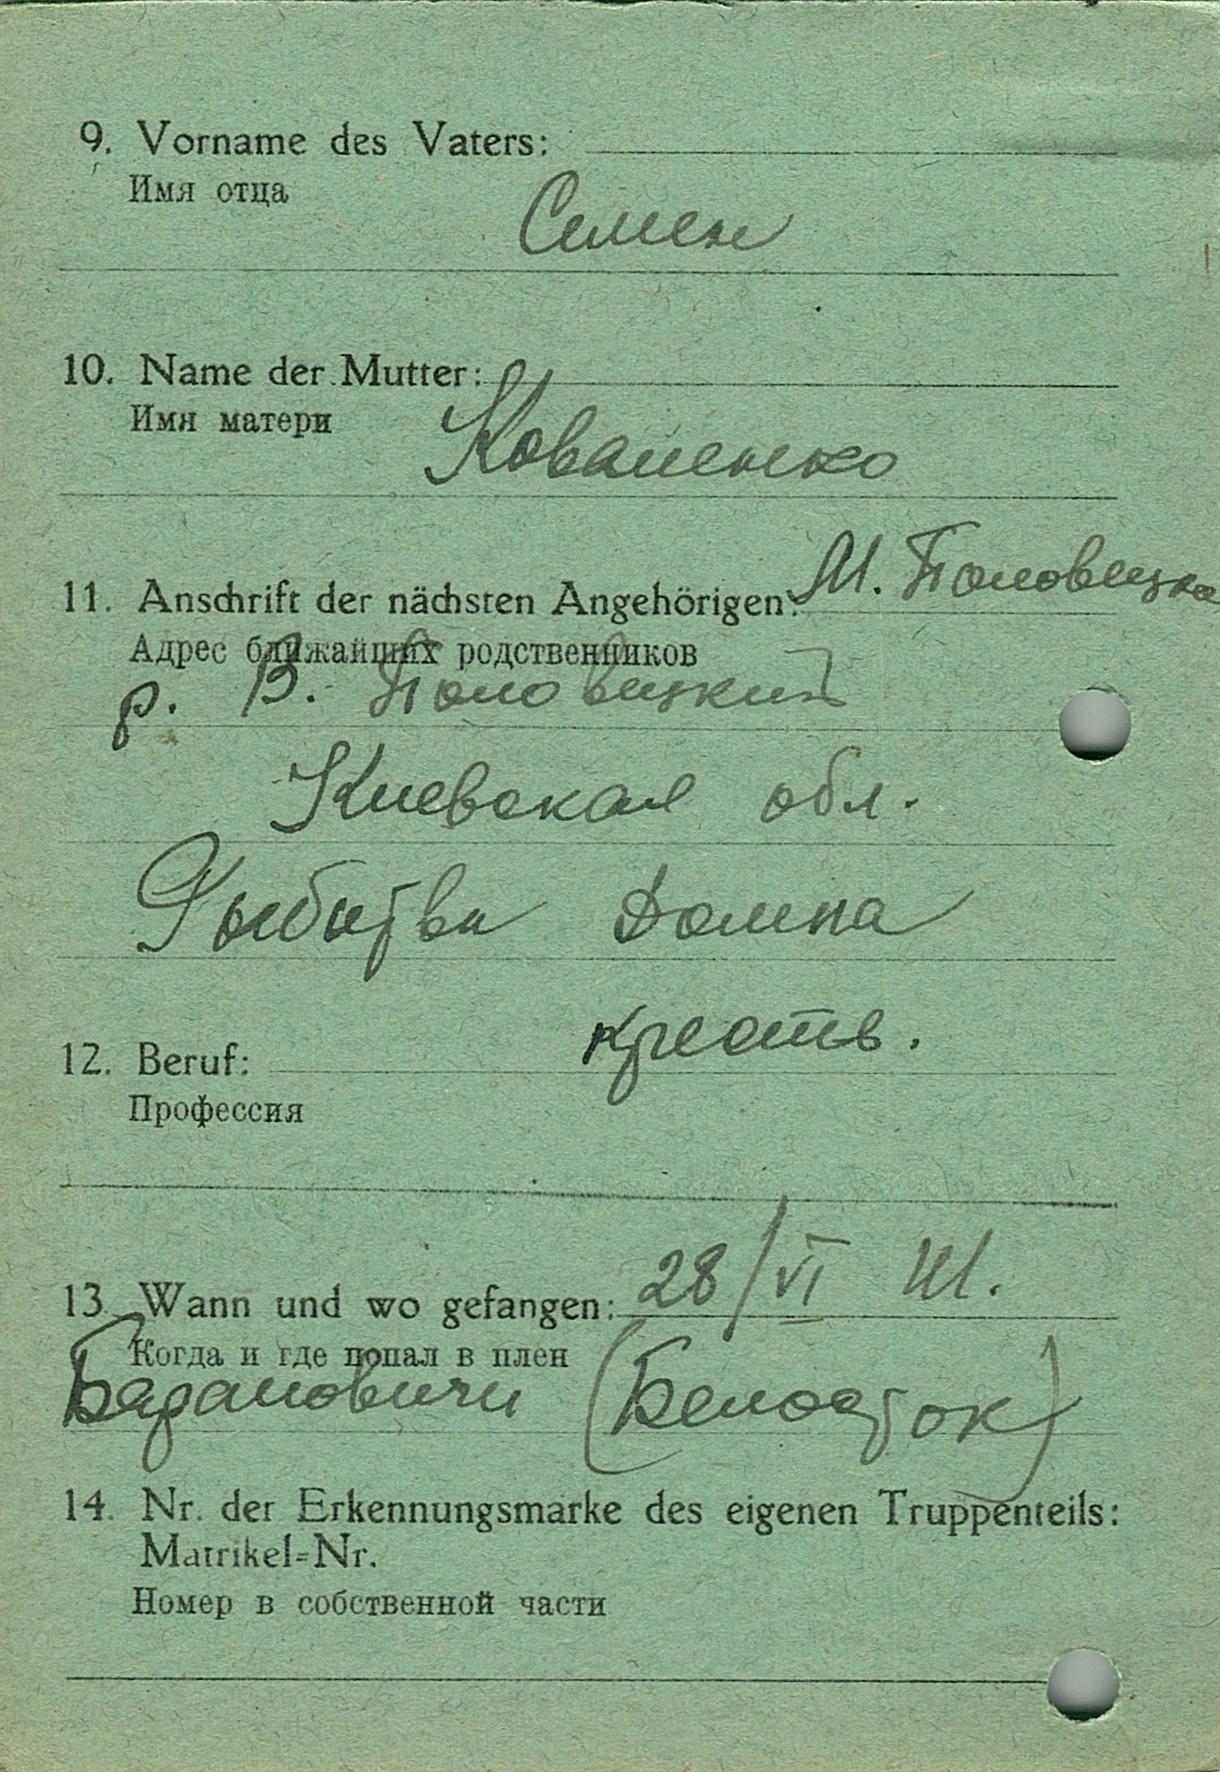 9. Vorname des Vaters:
Имя отца
Семен
10. Name der Mutter:
Имя матери
Коваленко
11. Anschrift der nächsten Angehörigen:
М. Половецкое
Адрес ближайших родственников
р. В. Половецкий
Киевская обл.
Домна
12. Beruf:
креств.
Профессия
13. Wann und wo gefangen:
28/VI 41.
Когда и где попал в плен
Барановичи (Белосток)
14. Nr. der Erkennungsmarke des eigenen Truppenteils:
Matrikel=Nr.
Номер в собственной части